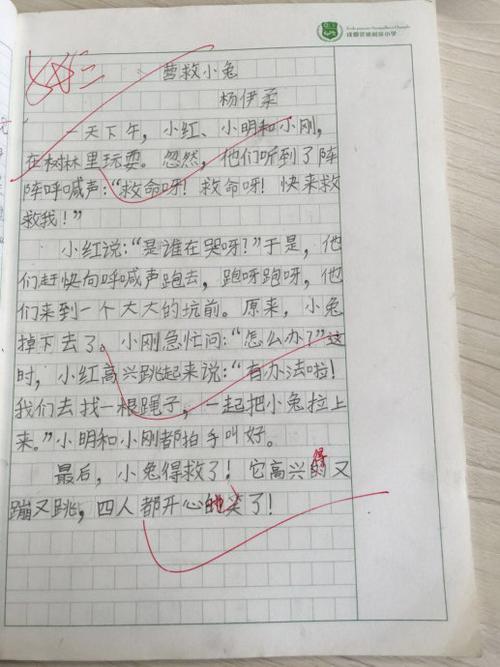 营救小兔
杨伊柔
一天下午，小红、小明和小刚，
在树林里玩耍。忽然，他们听到了阵
阵呼喊声：“救命呀！救命呀！快来救
救我！”
小红说：“是谁在哭呀？”于是，他
们赶快向呼喊声跑去，跑呀跑呀，他
们来到一个大大的坑前。原来，小兔
掉下去了。小刚急忙问：“怎么办？”这
时，小红高兴跳起来说：“有办法啦！
我们去找一根绳子，一起把小兔拉上
来。”小明和小刚都拍手叫好。
最后，小兔得救了！它高兴得又
蹦又跳，四人都开心地笑了！